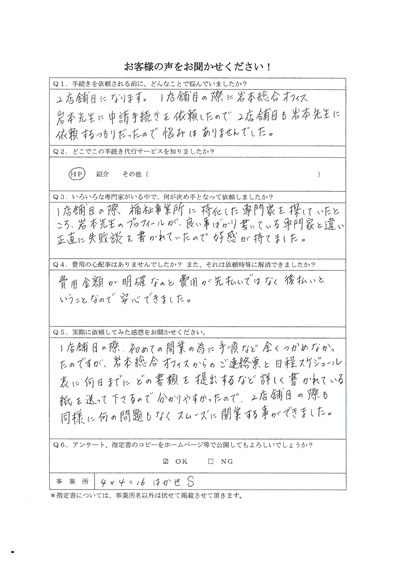 お客様の声をお聞かせください！
Q１．手続きを依頼される前に、どんなことで悩んでいましたか？
2店舗目になります。1店舗目の際に岩本総合オフィス
岩本先生に申請手続きを依頼したので2店舗目も岩本先生に
依頼するつもりだったので悩みはありませんでした。
Q２．どこでこの手続き代行サービスを知りましたか？
HP 紹介 その他（ ）
Q３．いろいろな専門家がいる中で、何が決め手となって依頼しましたか？
1店舗目の際、福祉事業所に特化した専門家を探していたと
ころ、岩本先生のプロフィールが、良い事ばかり書いている専門家と違い
正直に失敗談を書かれていたので好感が持てました。
Q４．費用の心配事はありませんでしたか？また、それは依頼時等に解消できましたか？
費用金額が明確なのと費用が先払いではなく後払いと
いうことなので安心できました。
Q５．実際に依頼してみた感想をお聞かせください。
1店舗目の際、初めての開業の為に手順など全くつかめなかっ
たのですが、岩本総合オフィスからのご連絡票と日程スケジュール
表に何日までにどの書類を提出するなど詳しく書かれている
紙を送って下さるので分かりやすかったので、2店舗目の際も
同様に何の問題もなくスムーズに開業する事ができました。
Q６．アンケート、指定書のコピーをホームページ等で公開してもよろしいでしょうか？
☑ OK □ NG
事業所 4×4=16 はかせS
＊指定書については、事業所名以外は伏せて掲載させて頂きます。